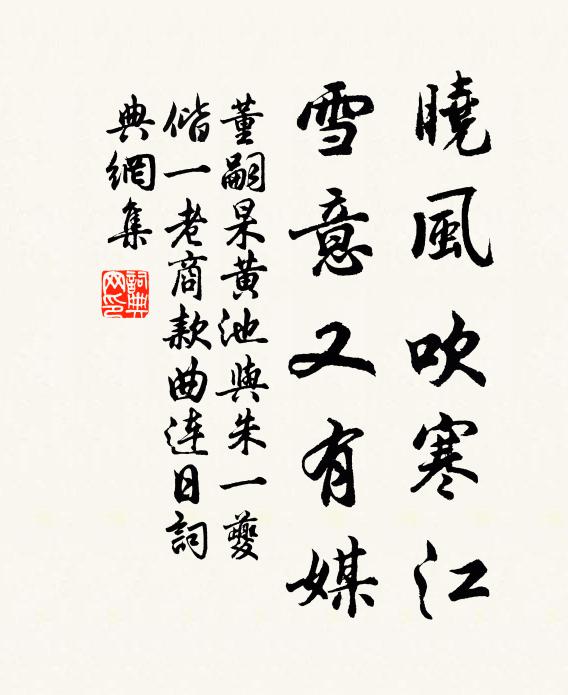 曉風吹寒江
雪意又有媒
董嗣杲黃池與朱一夔
偕一老商款曲連日詞
典網集
詞典網印